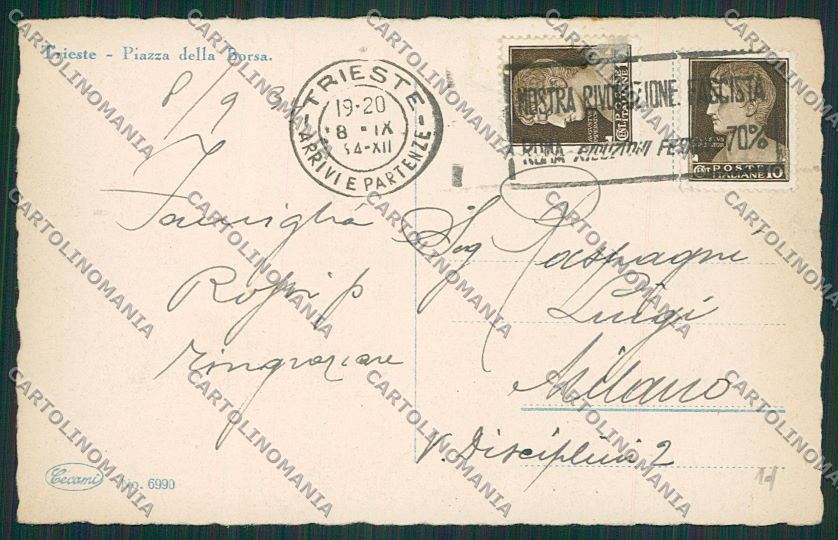 Trieste - Piazza della Borsa.
8/9 34
TRIESTE
19-20
8 IX
34-XII
ARRIVI E PARTENZE
MOSTRA RIVOLUZIONE FASCISTA
ROMA RIDUZIONI FERR 70%
POSTE
ITALIANE 10
Famiglia
Rossi p
ringraziare
Sig
Luigi
Milano
V. Disciplini 2
Cecami No. 6990
CARTOLINOMANIA